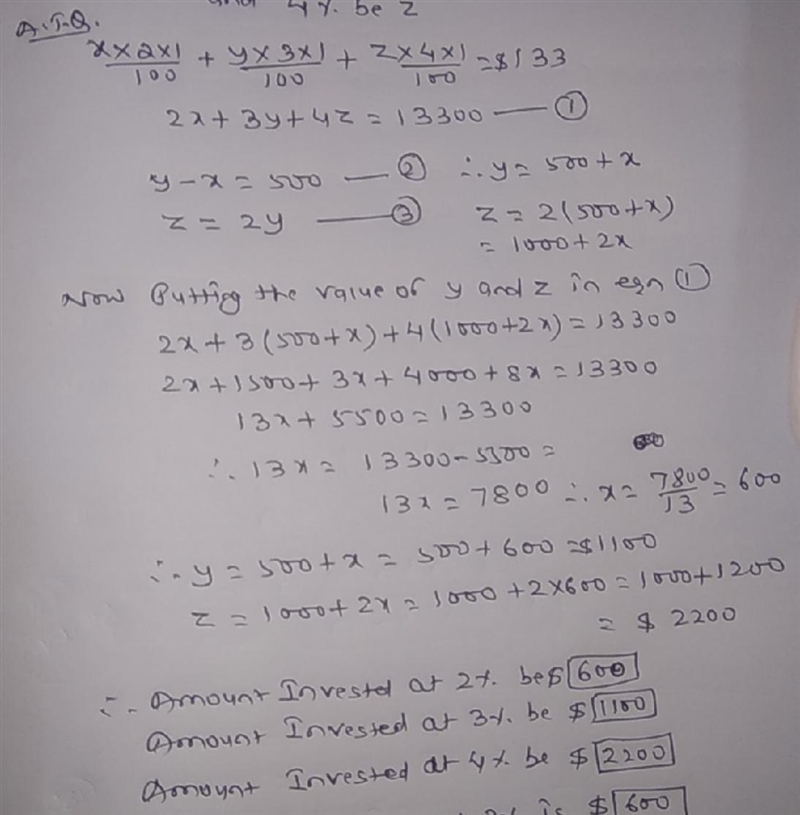 and 4% be z
A.T.Q.
x×2×1/100 + y×3×1/100 + z×4×1/100 = $133
2x+3y+4z = 13300 — ①
y-x = 500 — ② ∴ y = 500+x
z = 2y — ③ z = 2(500+x)
= 1000+2x
Now Putting the value of y and z in eqn ①
2x+3(500+x)+4(1000+2x) = 13300
2x+1500+3x+4000+8x = 13300
13x+5500 = 13300
∴ 13x = 13300-5500 =
13x = 7800 ∴ x = 7800/13 = 600
∴ y = 500+x = 500+600 = $1100
z = 1000+2x = 1000+2×600 = 1000+1200
= $ 2200
∴ Amount Invested at 2% be $ 600
Amount Invested at 3% be $ 1100
Amount Invested at 4% be $ 2200
is $ 600